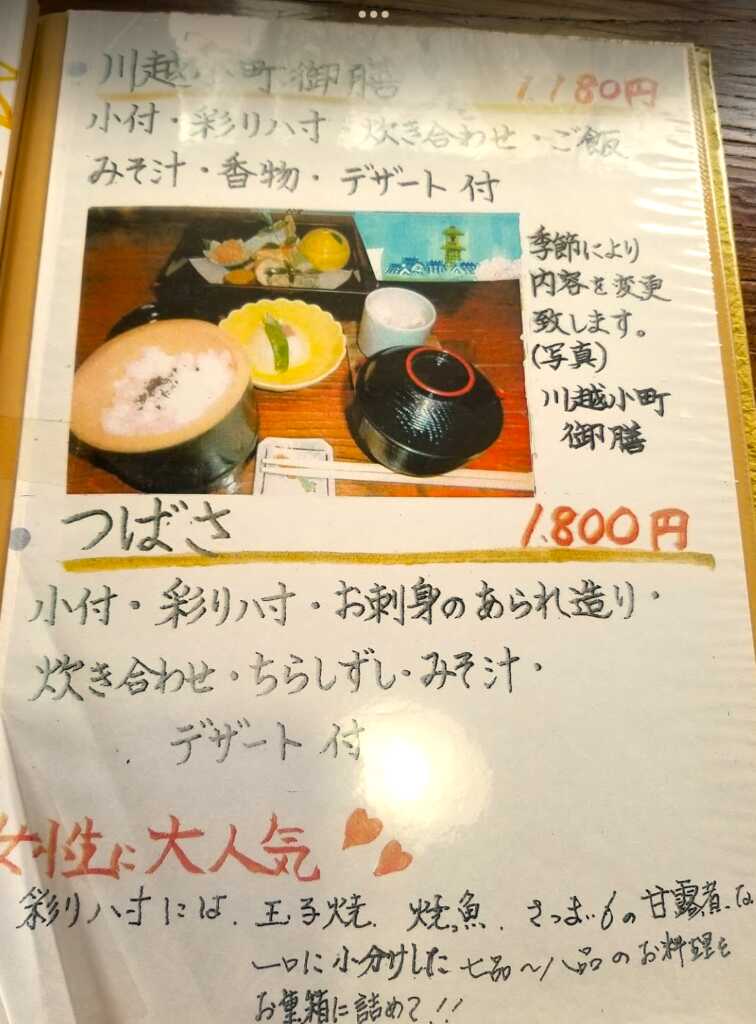 川越小町御膳 1.180円
小付・彩り八寸 炊き合わせ・ご飯
みそ汁・香物・デザート付
季節により
内容を変更
致します。
(写真)
川越小町
御膳
つばさ 1.800円
小付・彩り八寸・お刺身のあられ造り・
炊き合わせ・ちらしずし・みそ汁・
デザート付
女性に大人気
彩り八寸には、玉子焼、焼魚、さつまいもの甘露煮、な
一口に小分けした七品〜八品のお料理を
お重箱に詰めて!!